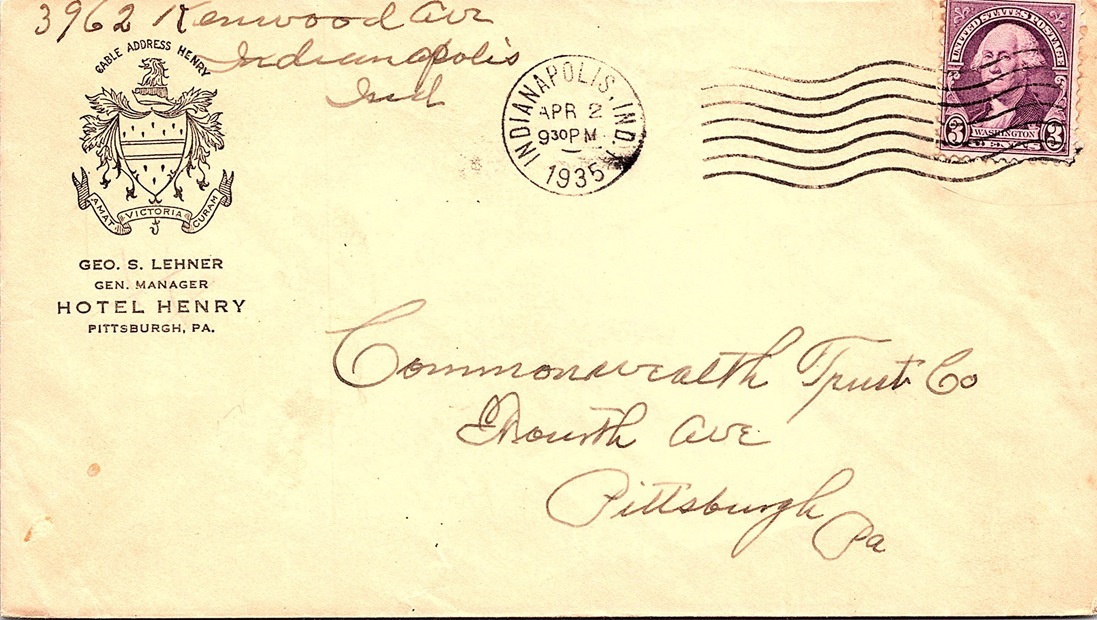 3962 Kenwood Ave
Indianapolis
Ind
CABLE ADDRESS HENRY
AMAT VICTORIA CURAM
GEO. S. LEHNER
GEN. MANAGER
HOTEL HENRY
PITTSBURGH, PA.
INDIANAPOLIS, IND.
APR 2
930PM
1935
UNITED STATES POSTAGE
3 WASHINGTON 3
CENTS
Commonwealth Trust Co
Fourth Ave
Pittsburgh
Pa